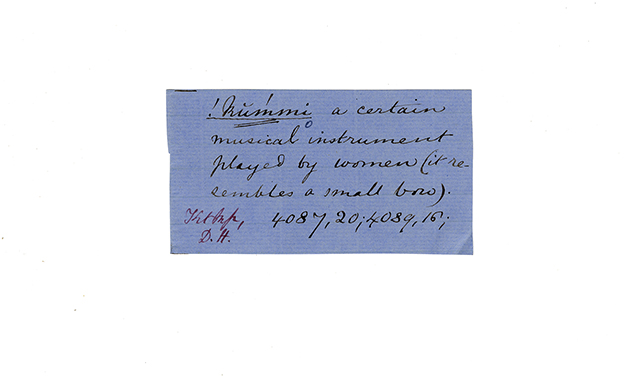 !kúmmi a certain
musical instrument
played by women (it re-
sembles a small bow).
4087, 20; 4089, 16;
D. H.